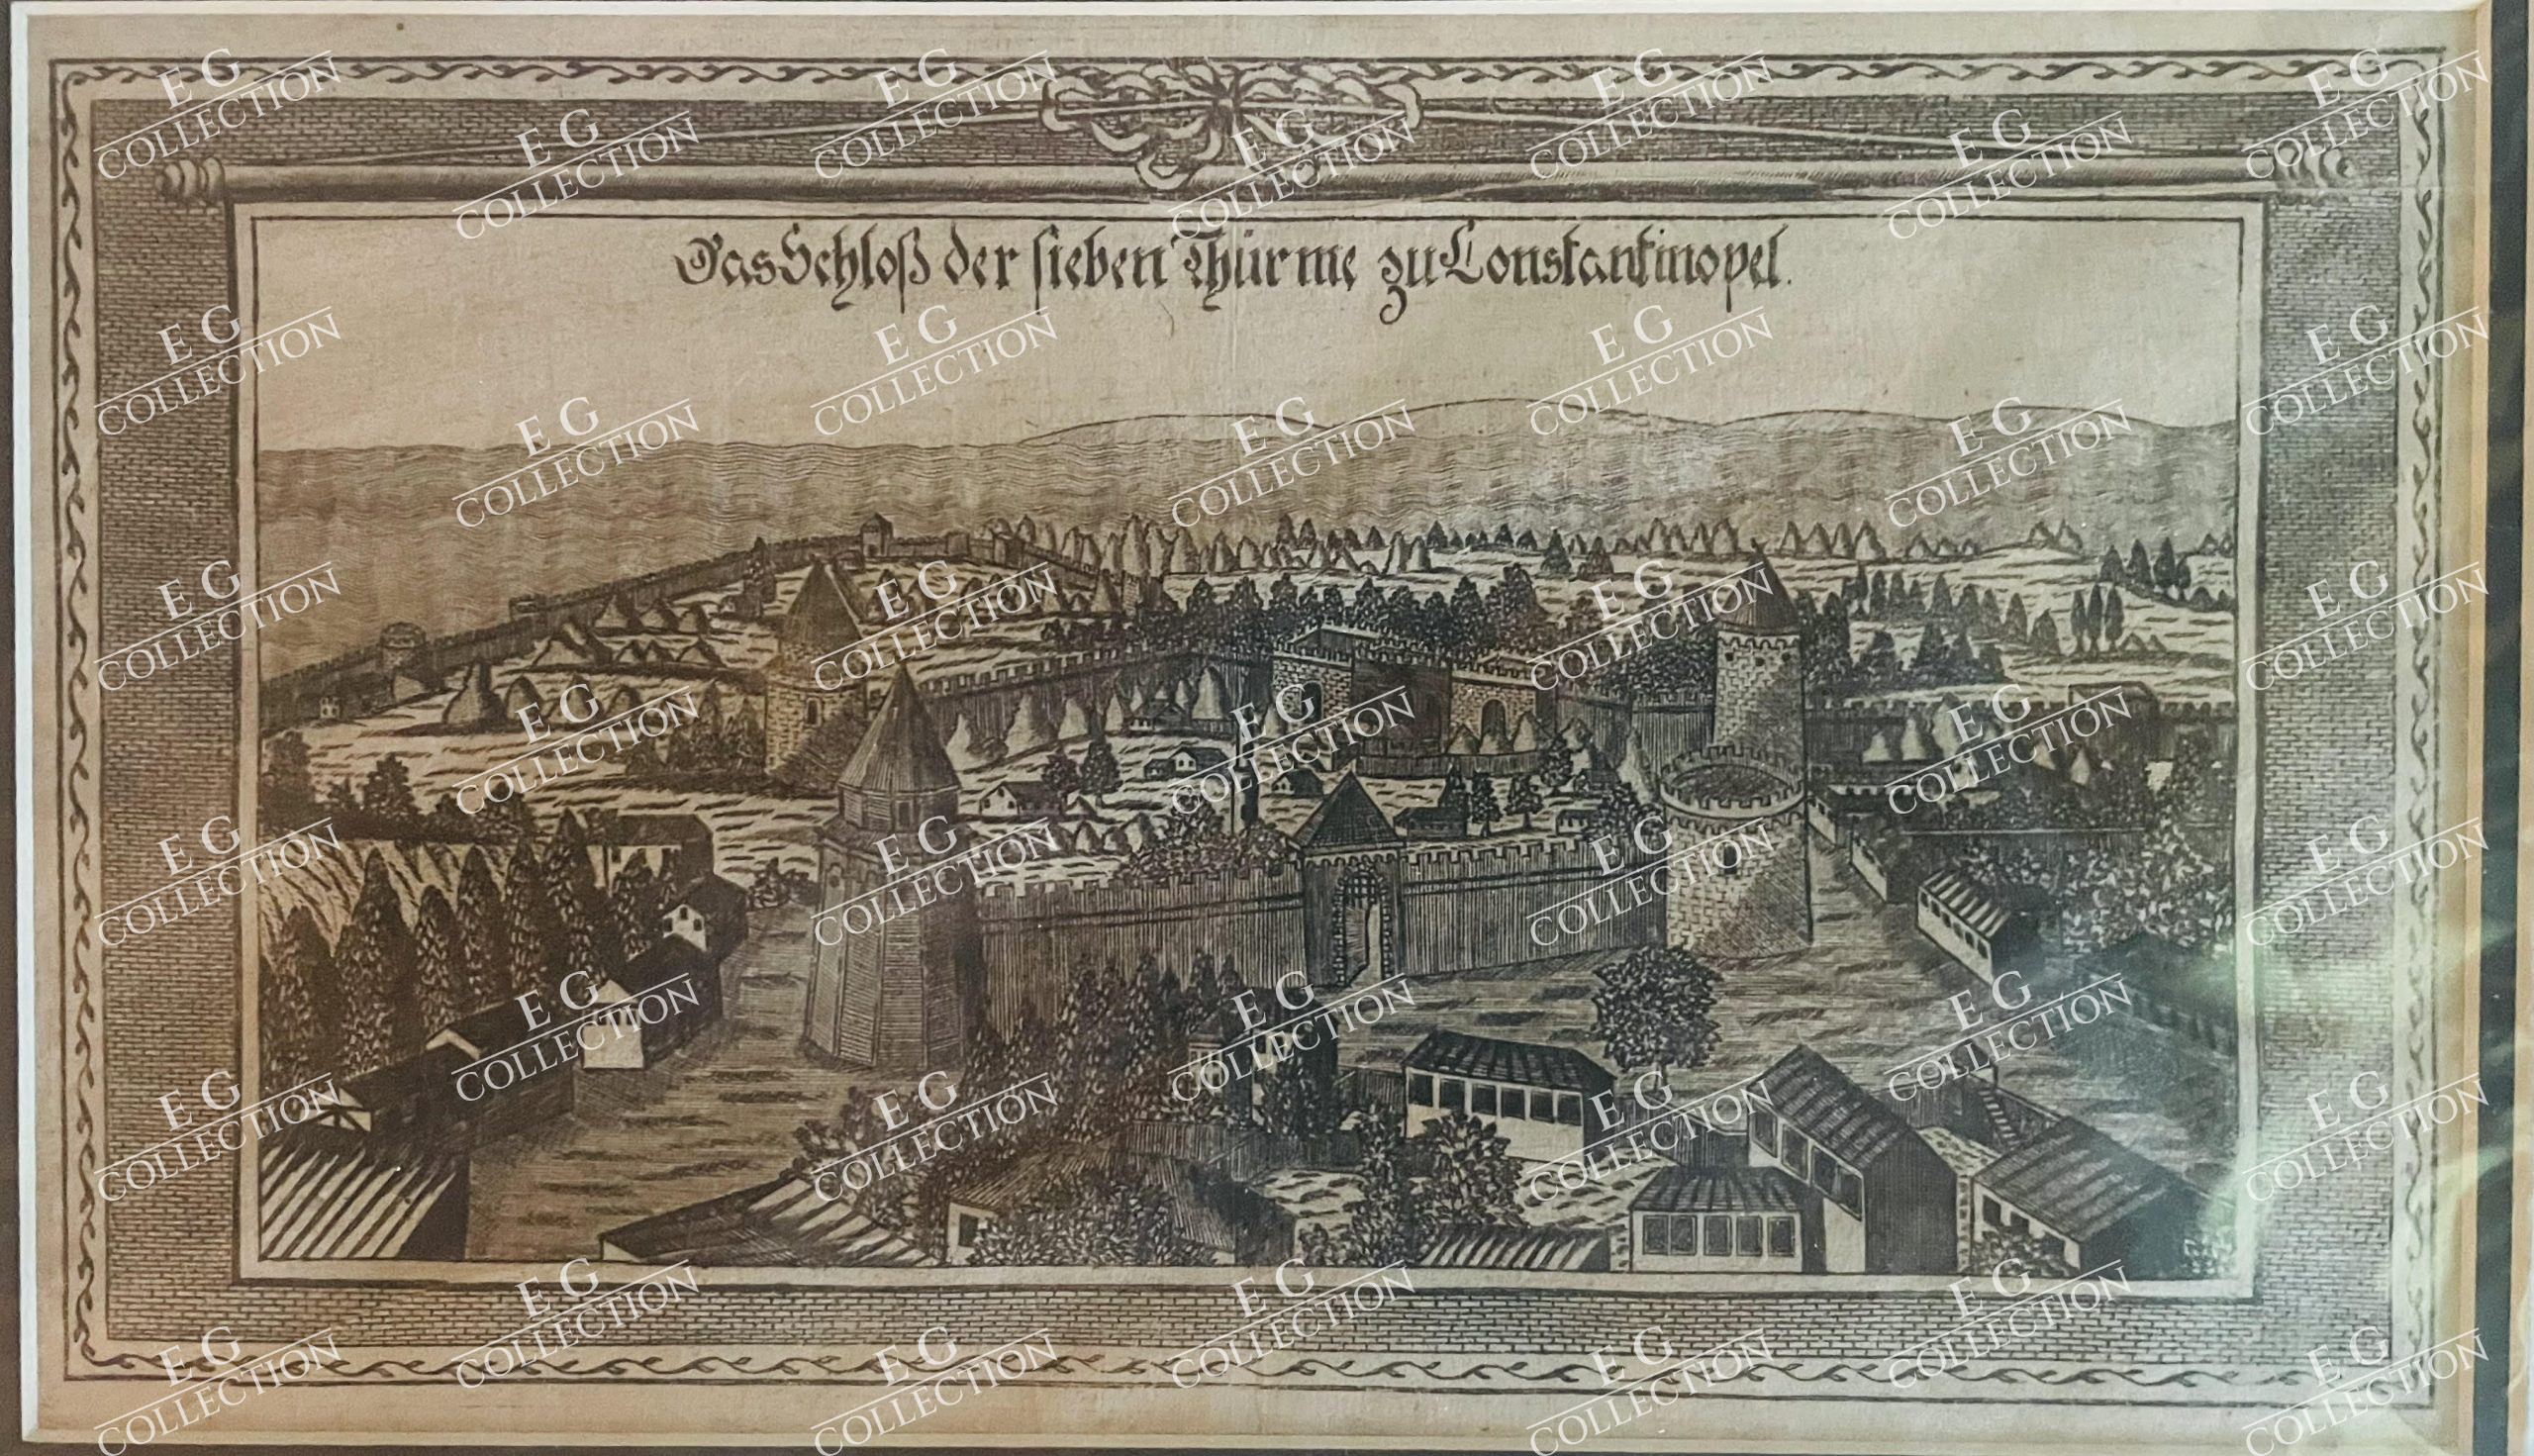 Das Schloß der sieben Thürme zu Constantinopel.
E G
COLLECTION